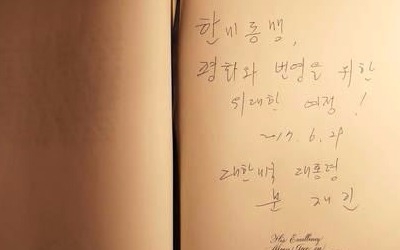 한미동맹,
평화와 번영을 위한
위대한 여정!
2017. 6. 29
대한민국 대통령
문 재 인
His Excellency
Moon Jae-in